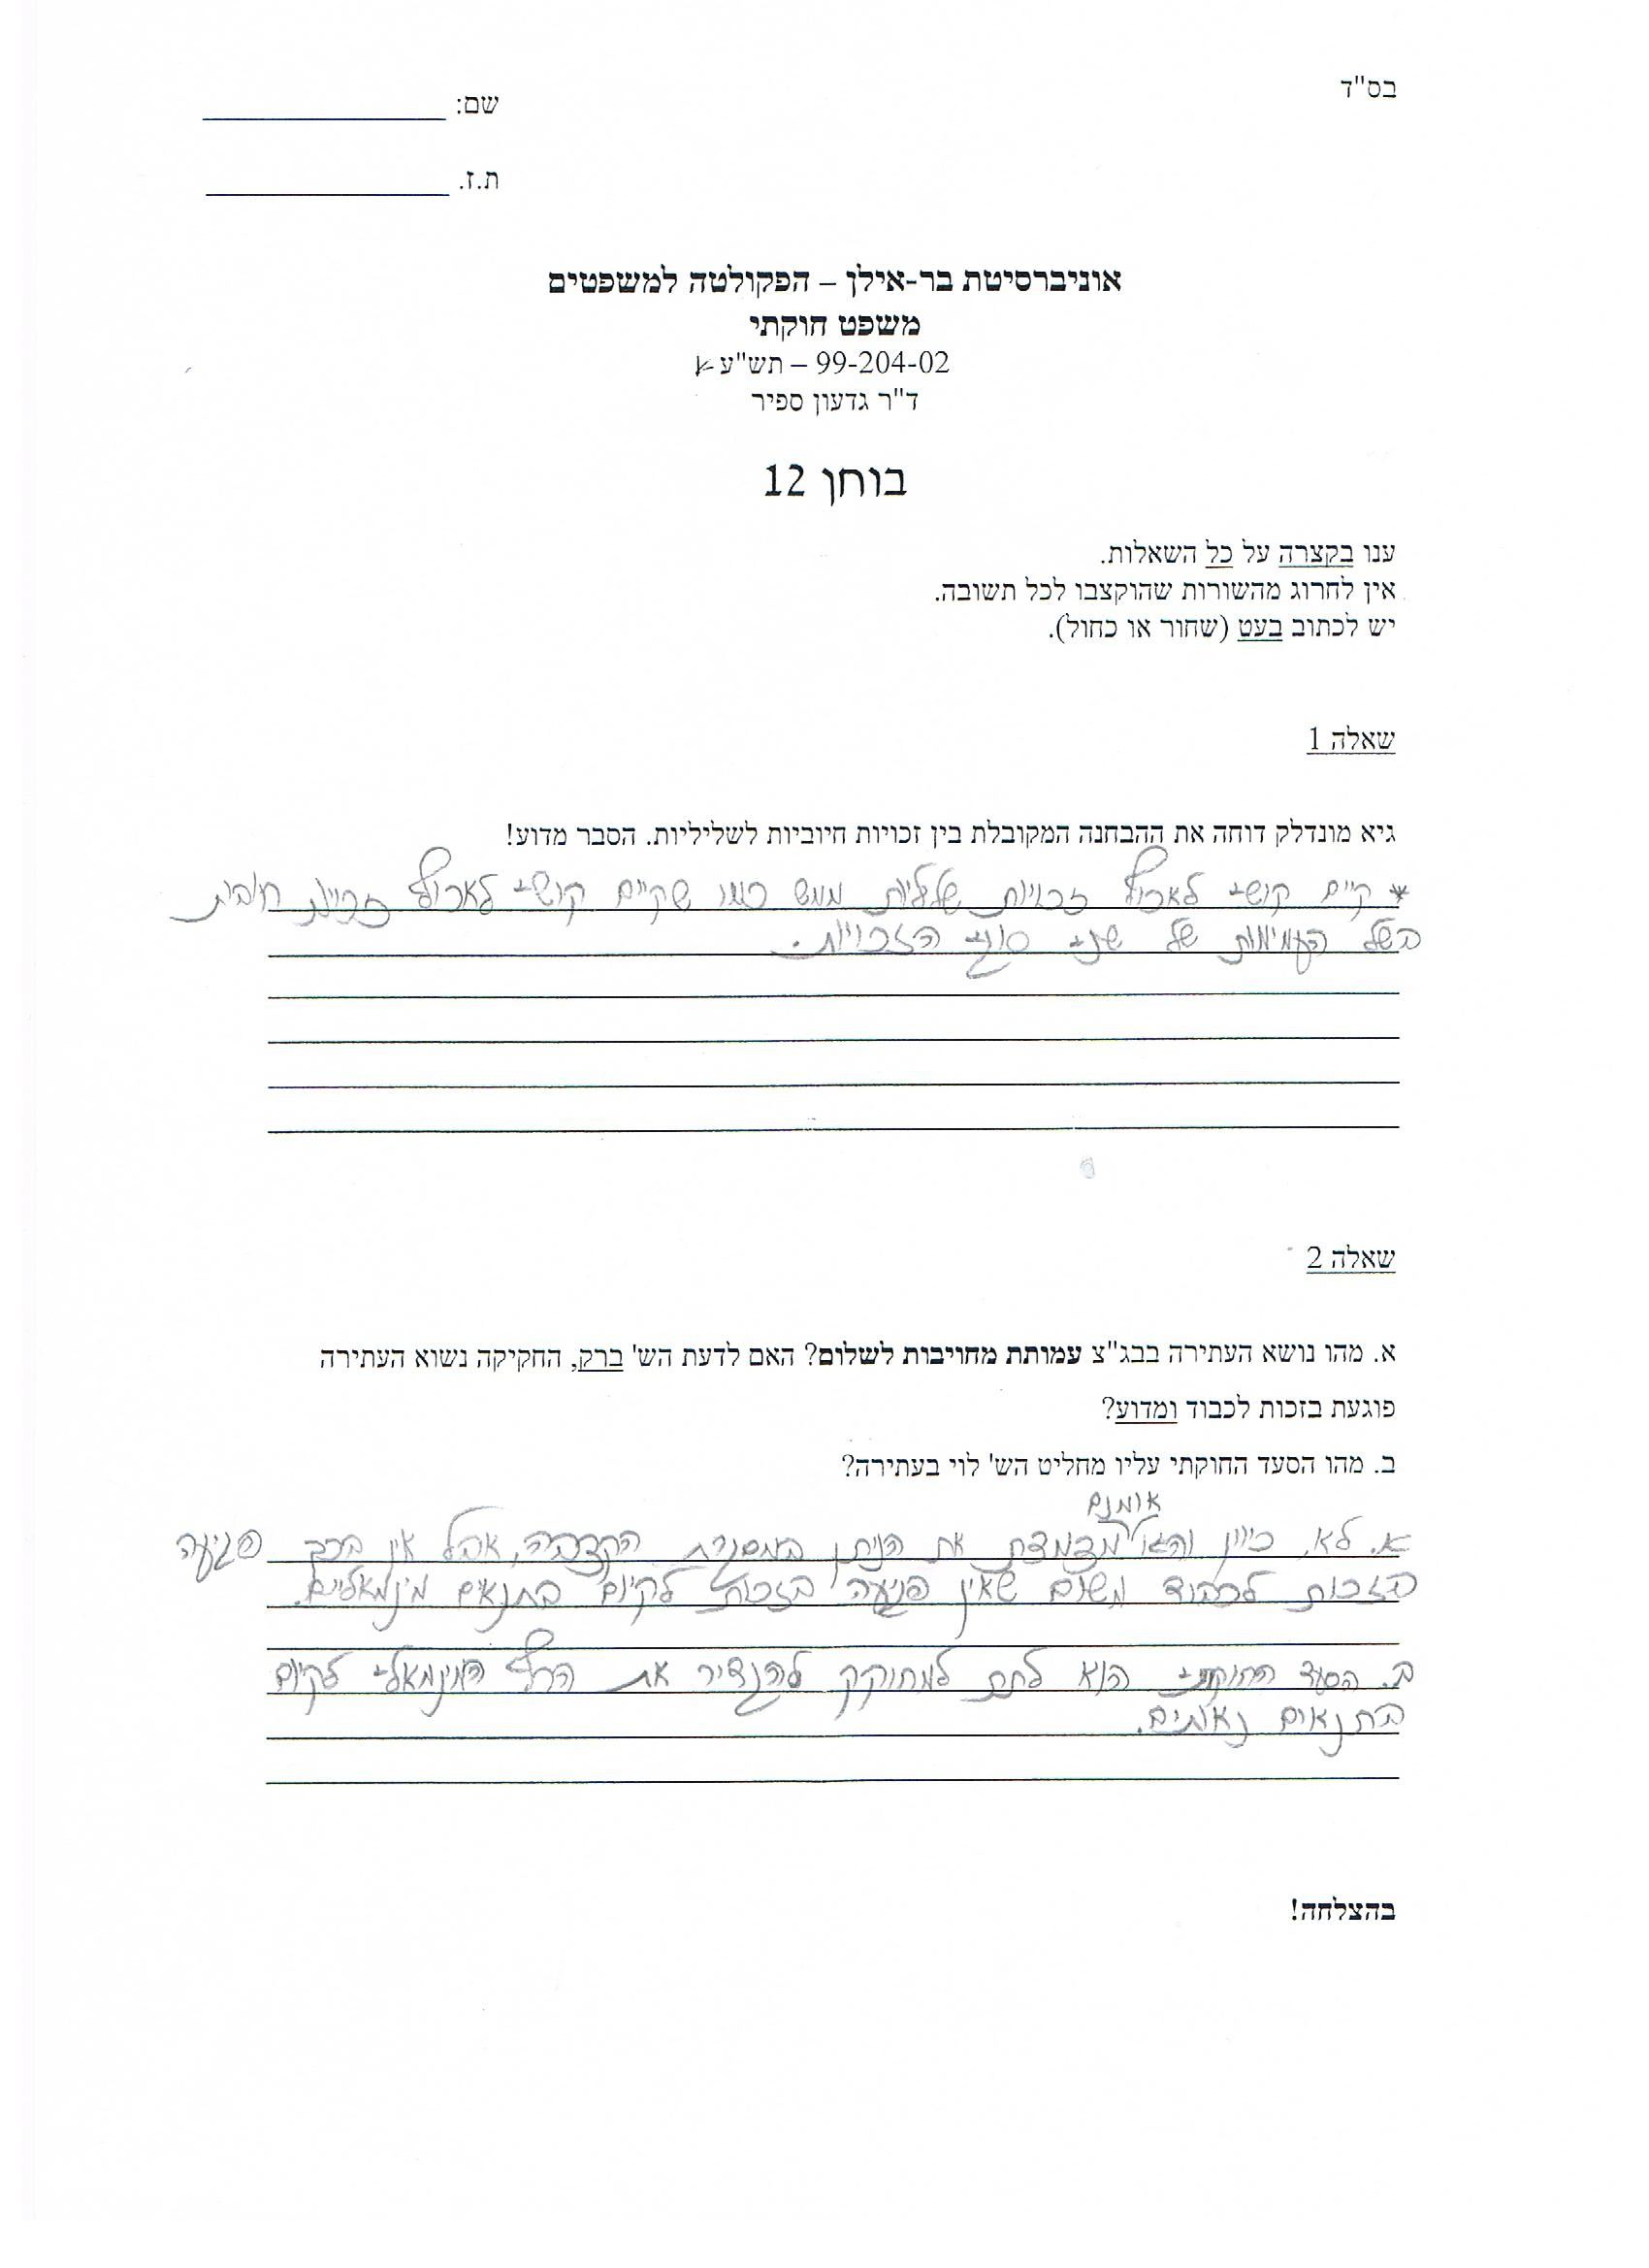 בס"ד
שם:
ת.ז.
אוניברסיטת בר-אילן – הפקולטה למשפטים
משפט חוקתי
99-204-02 – תש"ע א
ד"ר גדעון ספיר
בוחן 12
ענו בקצרה על כל השאלות.
אין לחרוג מהשורות שהוקצבו לכל תשובה.
יש לכתוב בעט (שחור או כחול).
שאלה 1
גיא מונדלק דוחה את ההבחנה המקובלת בין זכויות חיוביות לשליליות. הסבר מדוע!
* קיים קושי לאכוף זכויות שליליות ממש כמו שקיים קושי לאכוף זכויות חיוביות
בשל העמימות של שני סוגי הזכויות.
שאלה 2
א. מהו נושא העתירה בבג"צ עמותת מחויבות לשלום? האם לדעת הש' ברק, החקיקה נשוא העתירה
פוגעת בזכות לכבוד ומדוע?
ב. מהו הסעד החוקתי עליו מחליט הש' לוי בעתירה?
אומנם
א. לא, כיוון מצמצמת את הניתן במסגרת הקצבה, אבל אין בכך פגיעה
בזכות לכבוד משום שאין פגיעה בזכות לקיום בתנאים מינמאליים.
ב. הסעד החוקתי הוא לתת למחוקק להגדיר את הרף המינמאלי לקיום
בתנאים נאותים.
בהצלחה!